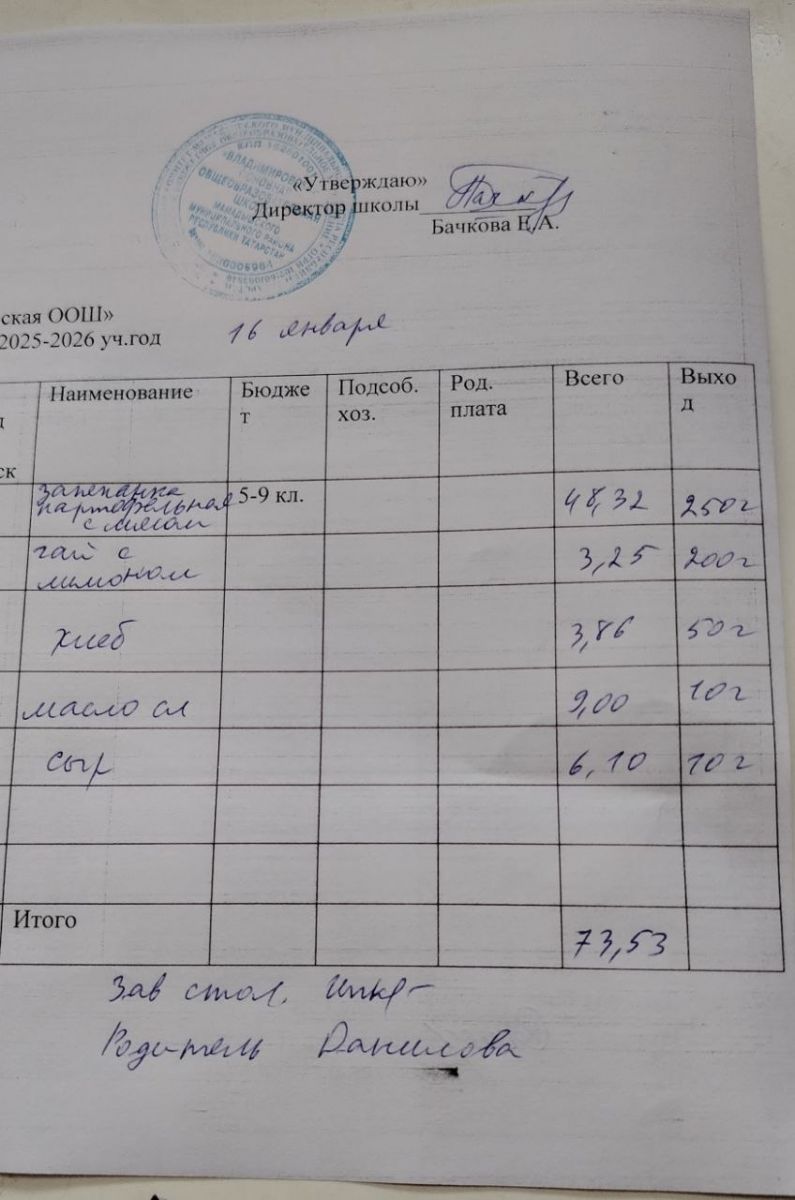 «ВЛАДИМИРОВ
ОСНОВНАЯ
ОБЩЕОБРАЗОВАТЕЛЬНАЯ
ШКОЛА»
МАМАДЫШСКОГО
МУНИЦИПАЛЬНОГО РАЙОНА
РЕСПУБЛИКИ ТАТАРСТАН
«Утверждаю»
Директор школы
Бачкова Е.А.
ская ООШ»
2025-2026 уч.год 16 января
Наименование Бюдже Подсоб. Род. Всего Выхо
т хоз. плата д
ск
запеканка
картофельная 5-9 кл. 48,32 250г
с мясом
чай с 3,25 200г
лимоном
хлеб 3,86 50г
масло сл 9,00 10г
сыр 6,10 10г
Итого 73,53
Зав стол.
Родитель Данилова